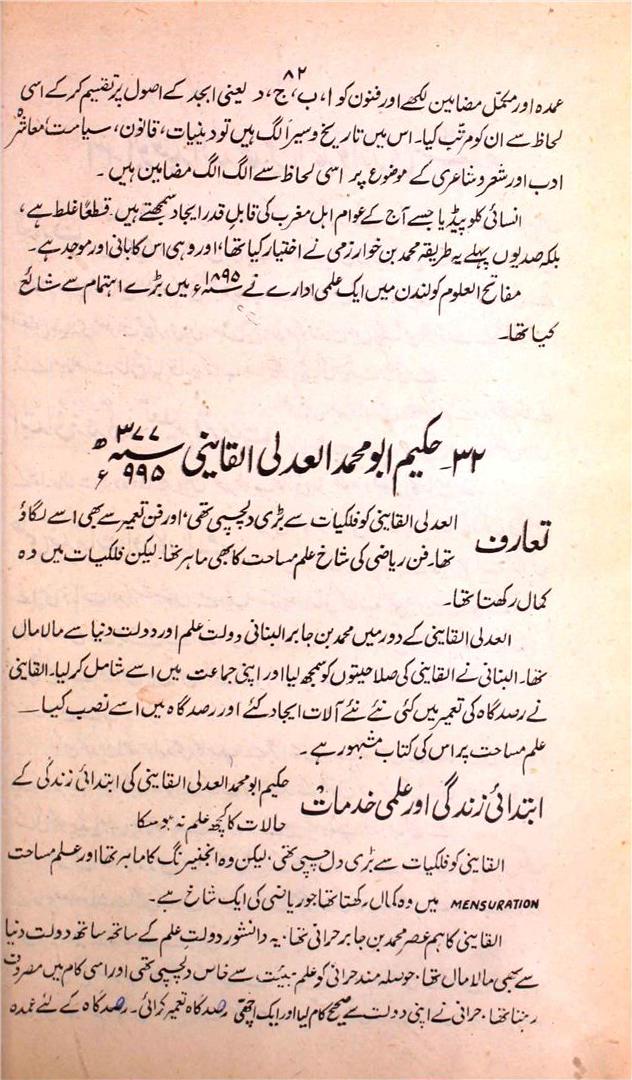 ۸۲
عمدہ اور مکمل مضامین لکھے اور فنون کو ا، ب، ج، د یعنی ابجد کے اصول پر تقسیم کرکے اسی
لحاظ سے ان کو مرتب کیا۔ اس میں تاریخ و سیر الگ ہیں تو دینیات، قانون، سیاست، معاشرہ
ادب اور شعر و شاعری کے موضوع پر اسی لحاظ سے الگ الگ مضامین ہیں۔
انسائی کلوپیڈیا جسے آج کے عوام اہل مغرب کی قابلِ قدر ایجاد سمجھتے ہیں قطعاً غلط ہے،
بلکہ صدیوں پہلے یہ طریقہ محمد بن خوارزمی نے اختیار کیا تھا، اور وہی اس کا بانی اور موجد ہے۔
مفاتح العلوم کو لندن میں ایک علمی ادارے نے ۱۸۹۵ء میں بڑے اہتمام سے شائع
کیا تھا۔
۳۲۔ حکیم ابو محمد العدلی القاینی سنہ ۳۷۷ھ ۹۹۵ء
تعارف العدلی القاینی کو فلکیات سے بڑی دلچسپی تھی، اور فن تعمیر سے بھی اسے لگاؤ
تھا۔ فن ریاضی کی شاخ علم مساحت کا بھی ماہر تھا۔ لیکن فلکیات میں وہ
کمال رکھتا تھا۔
العدلی القاینی کے دور میں محمد بن جابر البتانی دولت علم اور دولت دنیا سے مالا مال
تھا۔ البتانی نے القاینی کی صلاحیتوں کو سمجھ لیا اور اپنی جماعت میں اسے شامل کرلیا۔ القاینی
نے رصدگاہ کی تعمیر میں کئی نئے نئے آلات ایجاد کئے اور رصد گاہ میں اسے نصب کیا۔
علم مساحت پر اس کی کتاب مشہور ہے۔
ابتدائی زندگی اور علمی خدمات حکیم ابو محمد العدلی القاینی کی ابتدائی زندگی کے
حالات کا کچھ علم نہ ہو سکا
القاینی کو فلکیات سے بڑی دل چسپی تھی، لیکن وہ انجنیرنگ کا ماہر تھا اور علم مساحت
MENSURATION میں وہ کمال رکھتا تھا جو ریاضی کی ایک شاخ ہے۔
القاینی کا ہم عصر محمد بن جابر حرانی تھا۔ یہ دانشور دولتِ علم کے ساتھ ساتھ دولت دنیا
سے بھی مالا مال تھا۔ حوصلہ مند حرانی کو علم ہیئت سے خاص دلچسپی تھی اور اسی کام میں مصروف
رہتا تھا۔ حرانی نے اپنی دولت سے صحیح کام لیا اور ایک اچھی رصد گاہ تعمیر کرائی۔ رصد گاہ کے لئے عمدہ